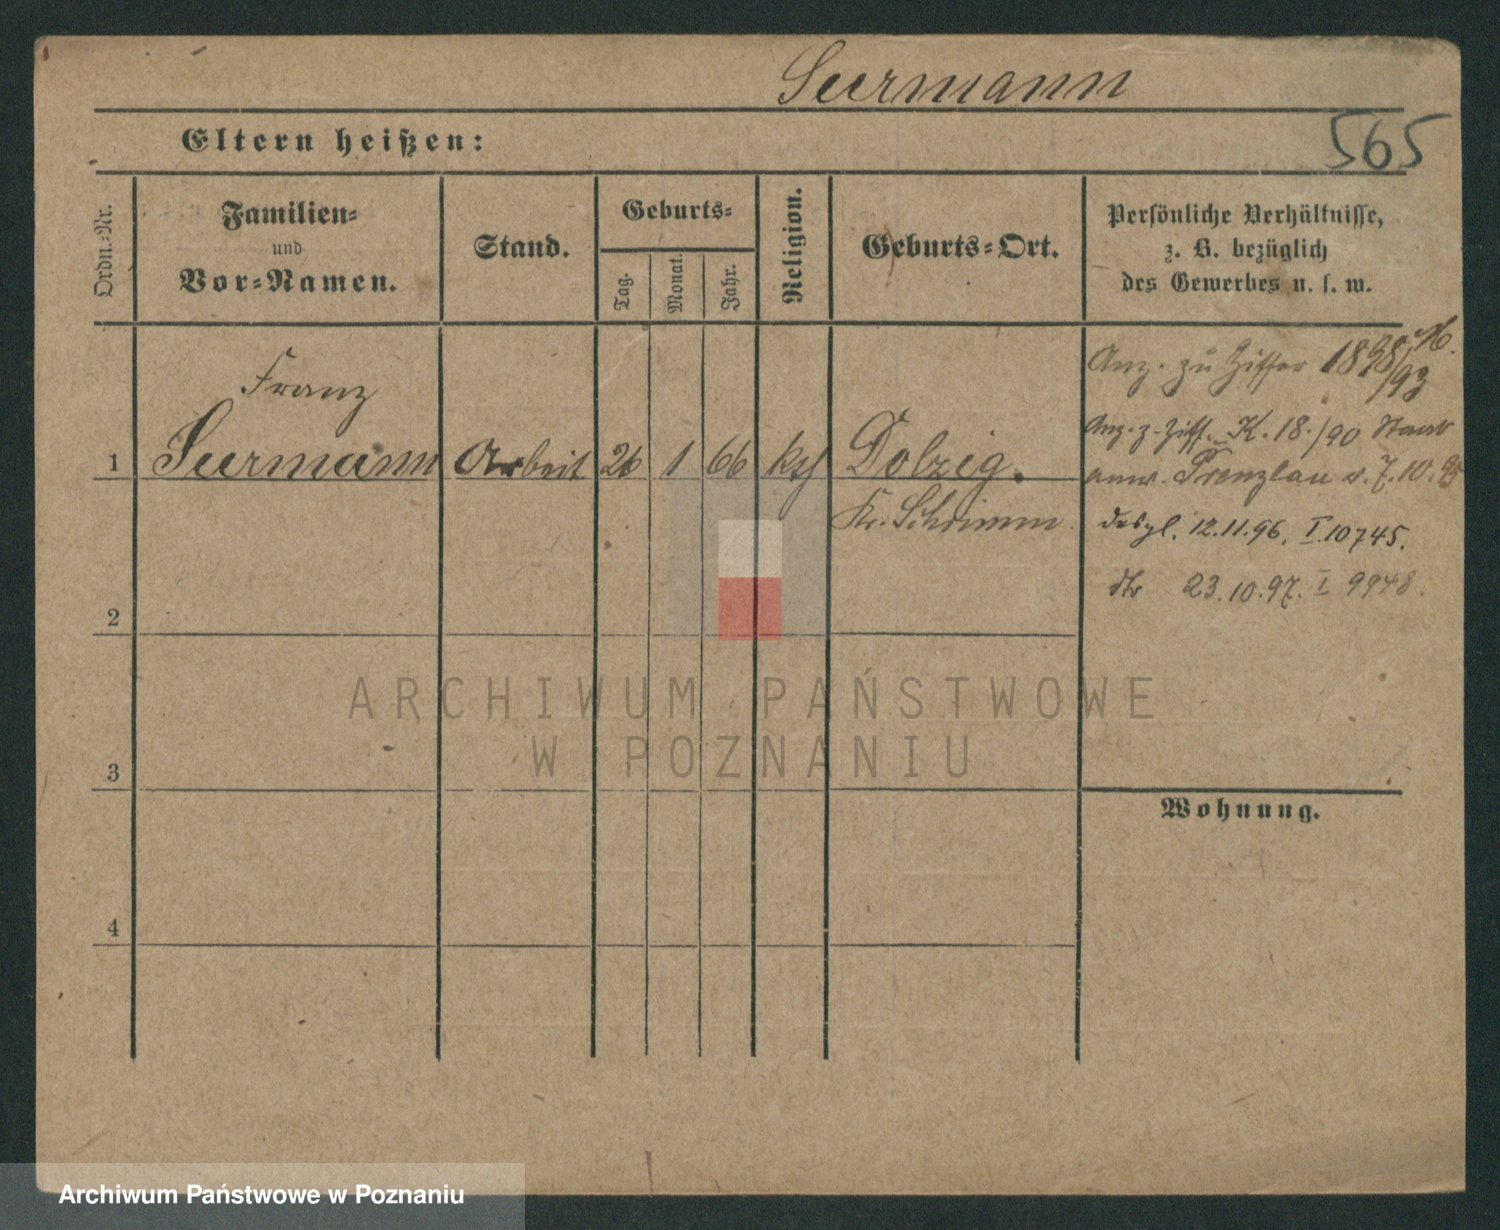 Seermann
565
Eltern heißen:
Ordn.-Nr.
Familien-
und
Vor-Namen.
Stand.
Geburts-
Tag.
Monat.
Jahr.
Religion.
Geburts-Ort.
Persönliche Verhältnisse,
z. B. bezüglich
des Gewerbes u. s. w.
Franz
1 Seermann Arbeit 26 1 66 kth Dolzig.
Kr. Schrimm
Anz. zu Ziffer
Anz. z. Ziff. K. 18./90
Prenzlau v. 7.10.95
desgl. 12.11.96. I.10745.
23.10.97. I 9948.
2
3
4
Wohnung.
ARCHIWUM PAŃSTWOWE
W POZNANIU
Archiwum Państwowe w Poznaniu